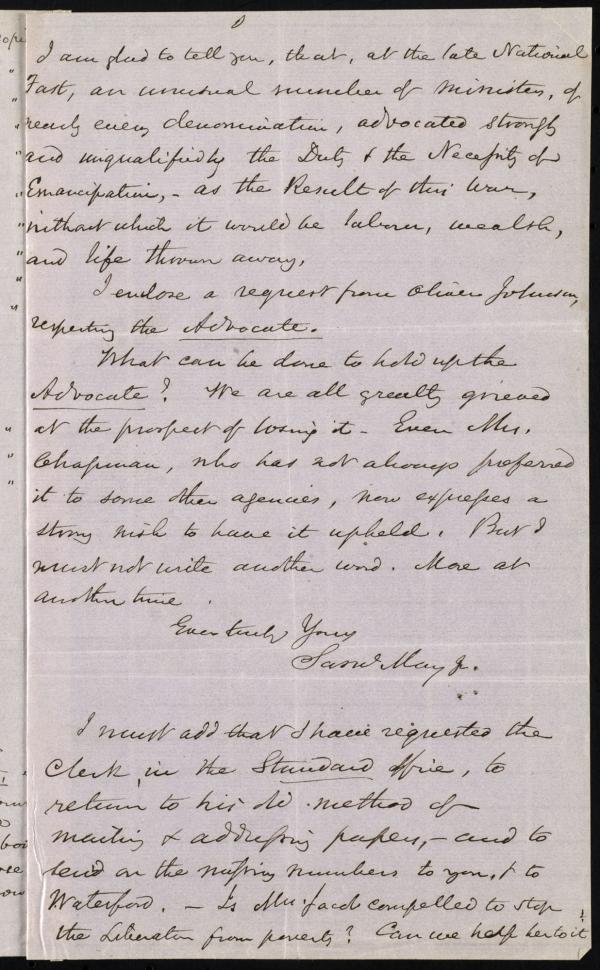 I am glad to tell you, that, at the late National
Fast, an unusual number of ministers, of
nearly every denomination, advocated strongly
and unqualifiedly the Duty & the Necessity of
Emancipation, - as the Result of this War,
without which it would be labour, wealth,
and life thrown away.
I enclose a request from Oliver Johnson,
respecting the Advocate.
What can be done to hold up the
Advocate? We are all greatly grieved
at the prospect of losing it - Even Mrs.
Chapman, who has not always preferred
it to some other agencies, now expresses a
strong wish to have it upheld. But I
must not write another word. More at
another time.
Ever truly Yours
Saml May Jr.
I must add that I have requested the
Clerk in the Standard office, to
return to his old method of
mailing & addressing papers, - and to
send on the missing numbers to you, & to
Waterford. - Is Mrs. Jacob compelled to stop
the Liberator from poverty? Can we help her to it